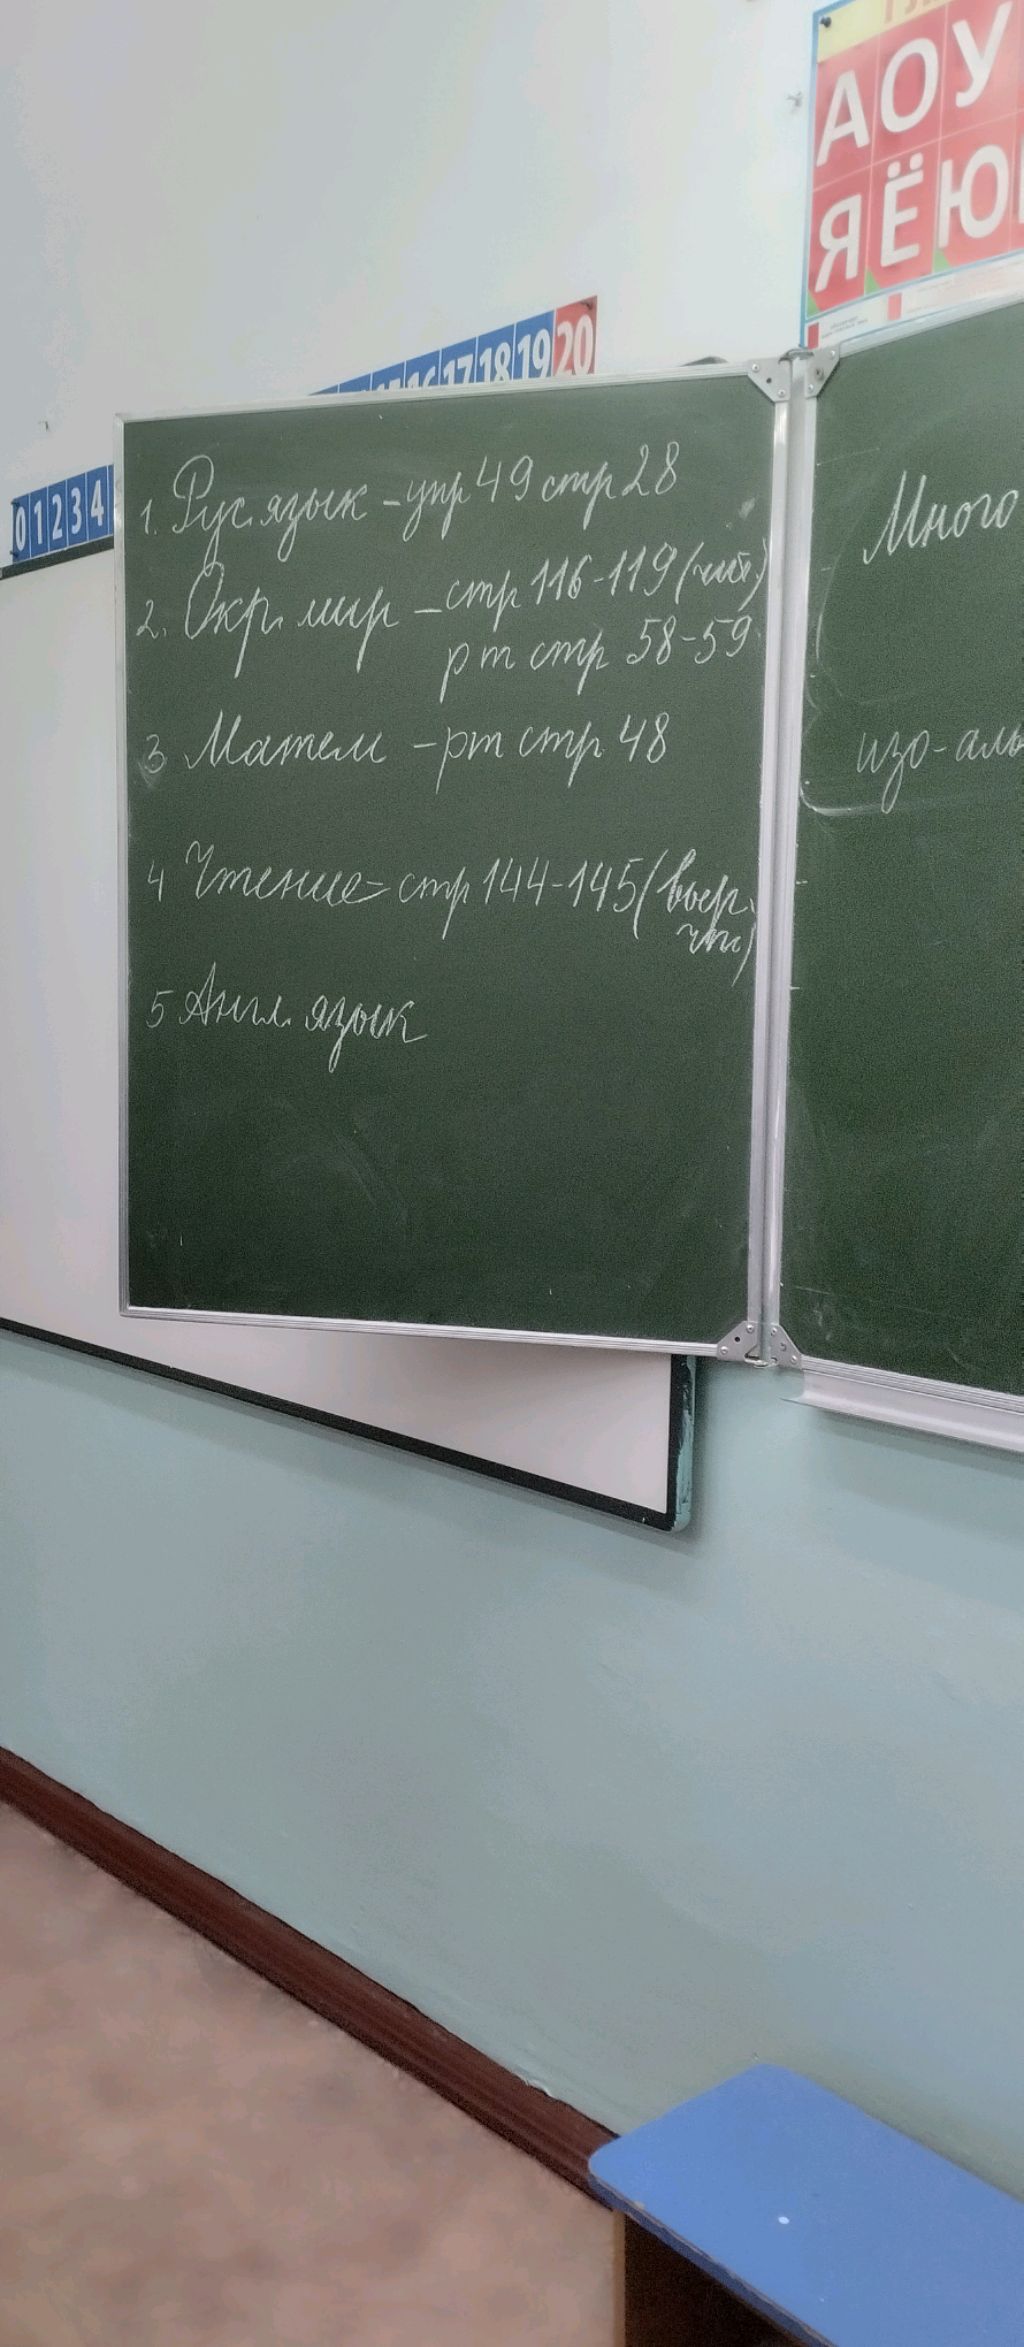 А О У
Я Ё Ю
16 17 18 19 20
0 1 2 3 4
1. Рус. язык - упр 49 стр 28
2. Окр. мир - стр 116-119 (чит.)
рт стр 58-59
3 Матем - рт стр 48
4 Чтение - стр 144-145 (выр.
чт)
5 Англ. язык
Много
изо-аль